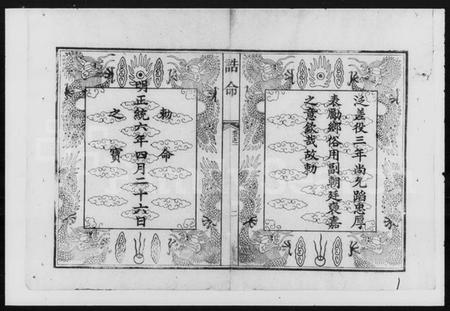 泛差役三年尚允蹈忠厚
表勵鄉俗用副朝廷褒嘉
之意欽哉故勅
誥命
勅命
明正統六年四月二十六日
之寶